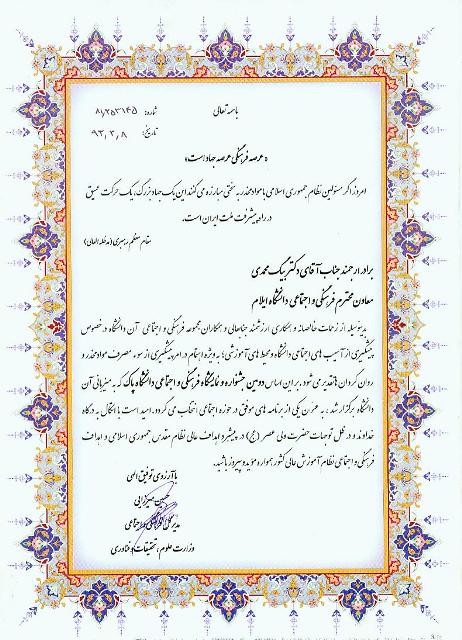 باسمه تعالی
شماره: ۸۱/۲۵۳۱۴۵
تاریخ: ۹۳,۳,۸
«عرصه فرهنگی عرصه جهاد است»
امروز اگر مسئولین نظام جمهوری اسلامی با مواد مخدر به سختی مبارزه می کنند این یک جهاد بزرگ، یک حرکت عمیق
در راه پیشرفت ملت ایران است.
مقام معظم رهبری (مدظله العالی)
برادر ارجمند جناب آقای دکتر بیک محمدی
معاون محترم فرهنگی و اجتماعی دانشگاه ایلام
بدینوسیله از زحمات خالصانه و همکاری ارزشمند جنابعالی و همکاران مجموعه فرهنگی و اجتماعی آن دانشگاه در خصوص
پیشگیری از آسیب های اجتماعی دانشگاه و محیط های آموزشی؛ به ویژه اهتمام در امر پیشگیری از سوء مصرف مواد مخدر و
روان گردان ها تقدیر می شود. بر این اساس دومین جشنواره و نمایشگاه فرهنگی و اجتماعی دانشگاه پاک که به میزبانی آن
دانشگاه برگزار شد، به عنوان یکی از برنامه های موفق در حوزه اجتماعی انتخاب می گردد. امید است با اتکال به درگاه
خداوند و در ظل توجهات حضرت ولی عصر (عج) در پیشبرد اهداف عالی نظام مقدس جمهوری اسلامی و اهداف
فرهنگی و اجتماعی نظام آموزش عالی کشور همواره مؤید و پیروز باشید.
با آرزوی توفیق الهی
حسین میرزایی
مدیر کل فرهنگی و اجتماعی
وزارت علوم، تحقیقات و فناوری